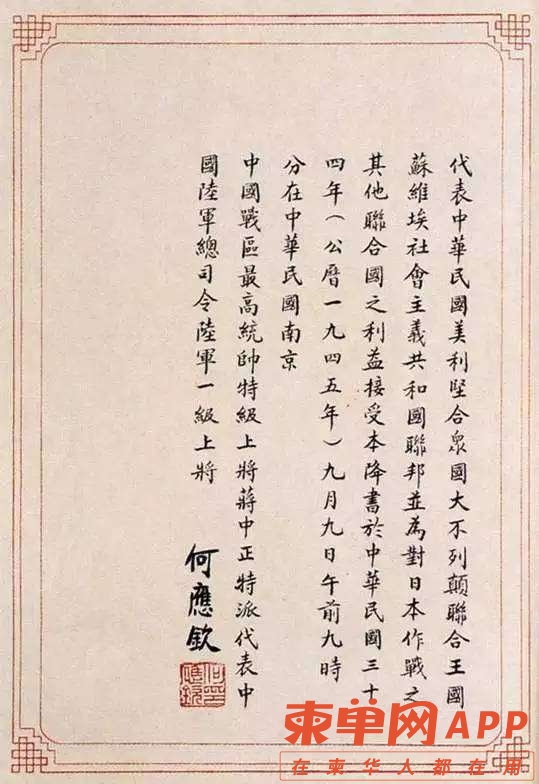 代表中華民國美利堅合衆國大不列顛聯合王國
蘇維埃社會主義共和國聯邦並為對日本作戰之
其他聯合國之利益接受本降書於中華民國三十
四年(公曆一九四五年)九月九日午前九時
分在中華民國南京
中國戰區最高統帥特級上將蔣中正特派代表中
國陸軍總司令陸軍一級上將
何應欽
柬单网APP
在柬华人都在用